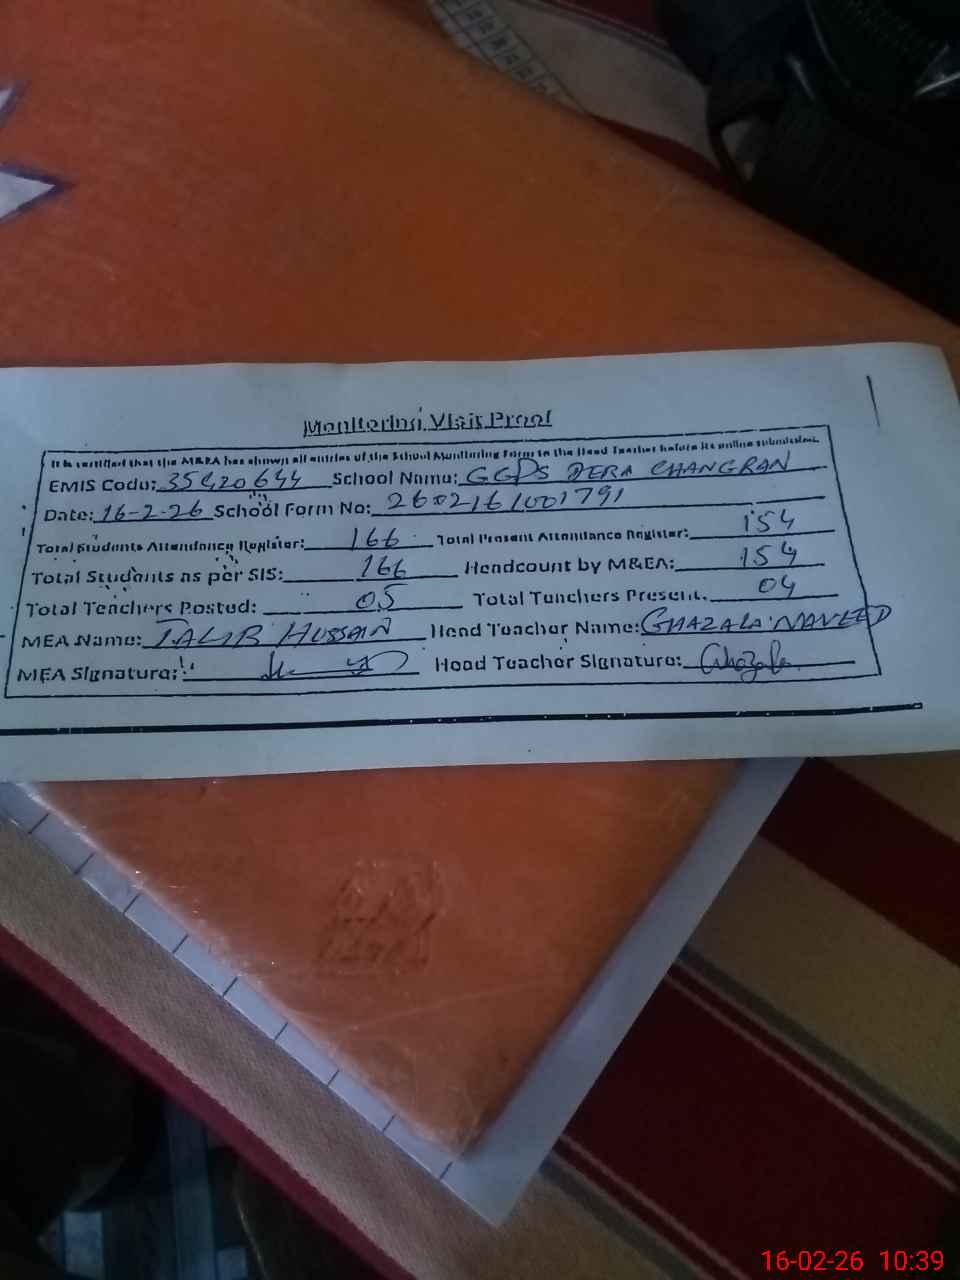 Monitoring Visit Proof
It is certified that the M&EA has shown all entries of the School Monitoring Form to the Head Teacher before its online submission.
EMIS Code: 35420644 School Name: GGPS DERA CHANGRAN
Date: 16-2-26 School Form No: 2602161001791
Total Students Attendance Register: 166 Total Present Attendance Register: 154
Total Students as per SIS: 166 Headcount by M&EA: 154
Total Teachers Posted: 05 Total Teachers Present. 04
MEA Name: TAHIR HUSSAIN Head Teacher Name: GHAZALA NAVEED
MEA Signature: Head Teacher Signature: Ghazala
16-02-26 10:39